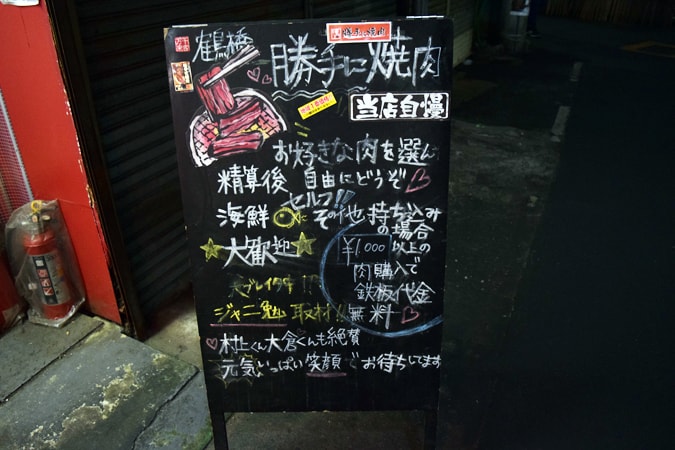 鶴橋
勝手に焼肉
当店自慢
お好きな肉を選ん
精算後 自由にどうぞ♡
セルフ!!
海鮮 に その他 持ち込み
の場合
☆大歓迎☆
¥1,000 以上の
肉購入で
鉄板代金
無料♡
大ブレイク中!!
ジャニ勉 取材!!
♡村上くん大倉くんも絶賛
元気いっぱい笑顔でお待ちしてます